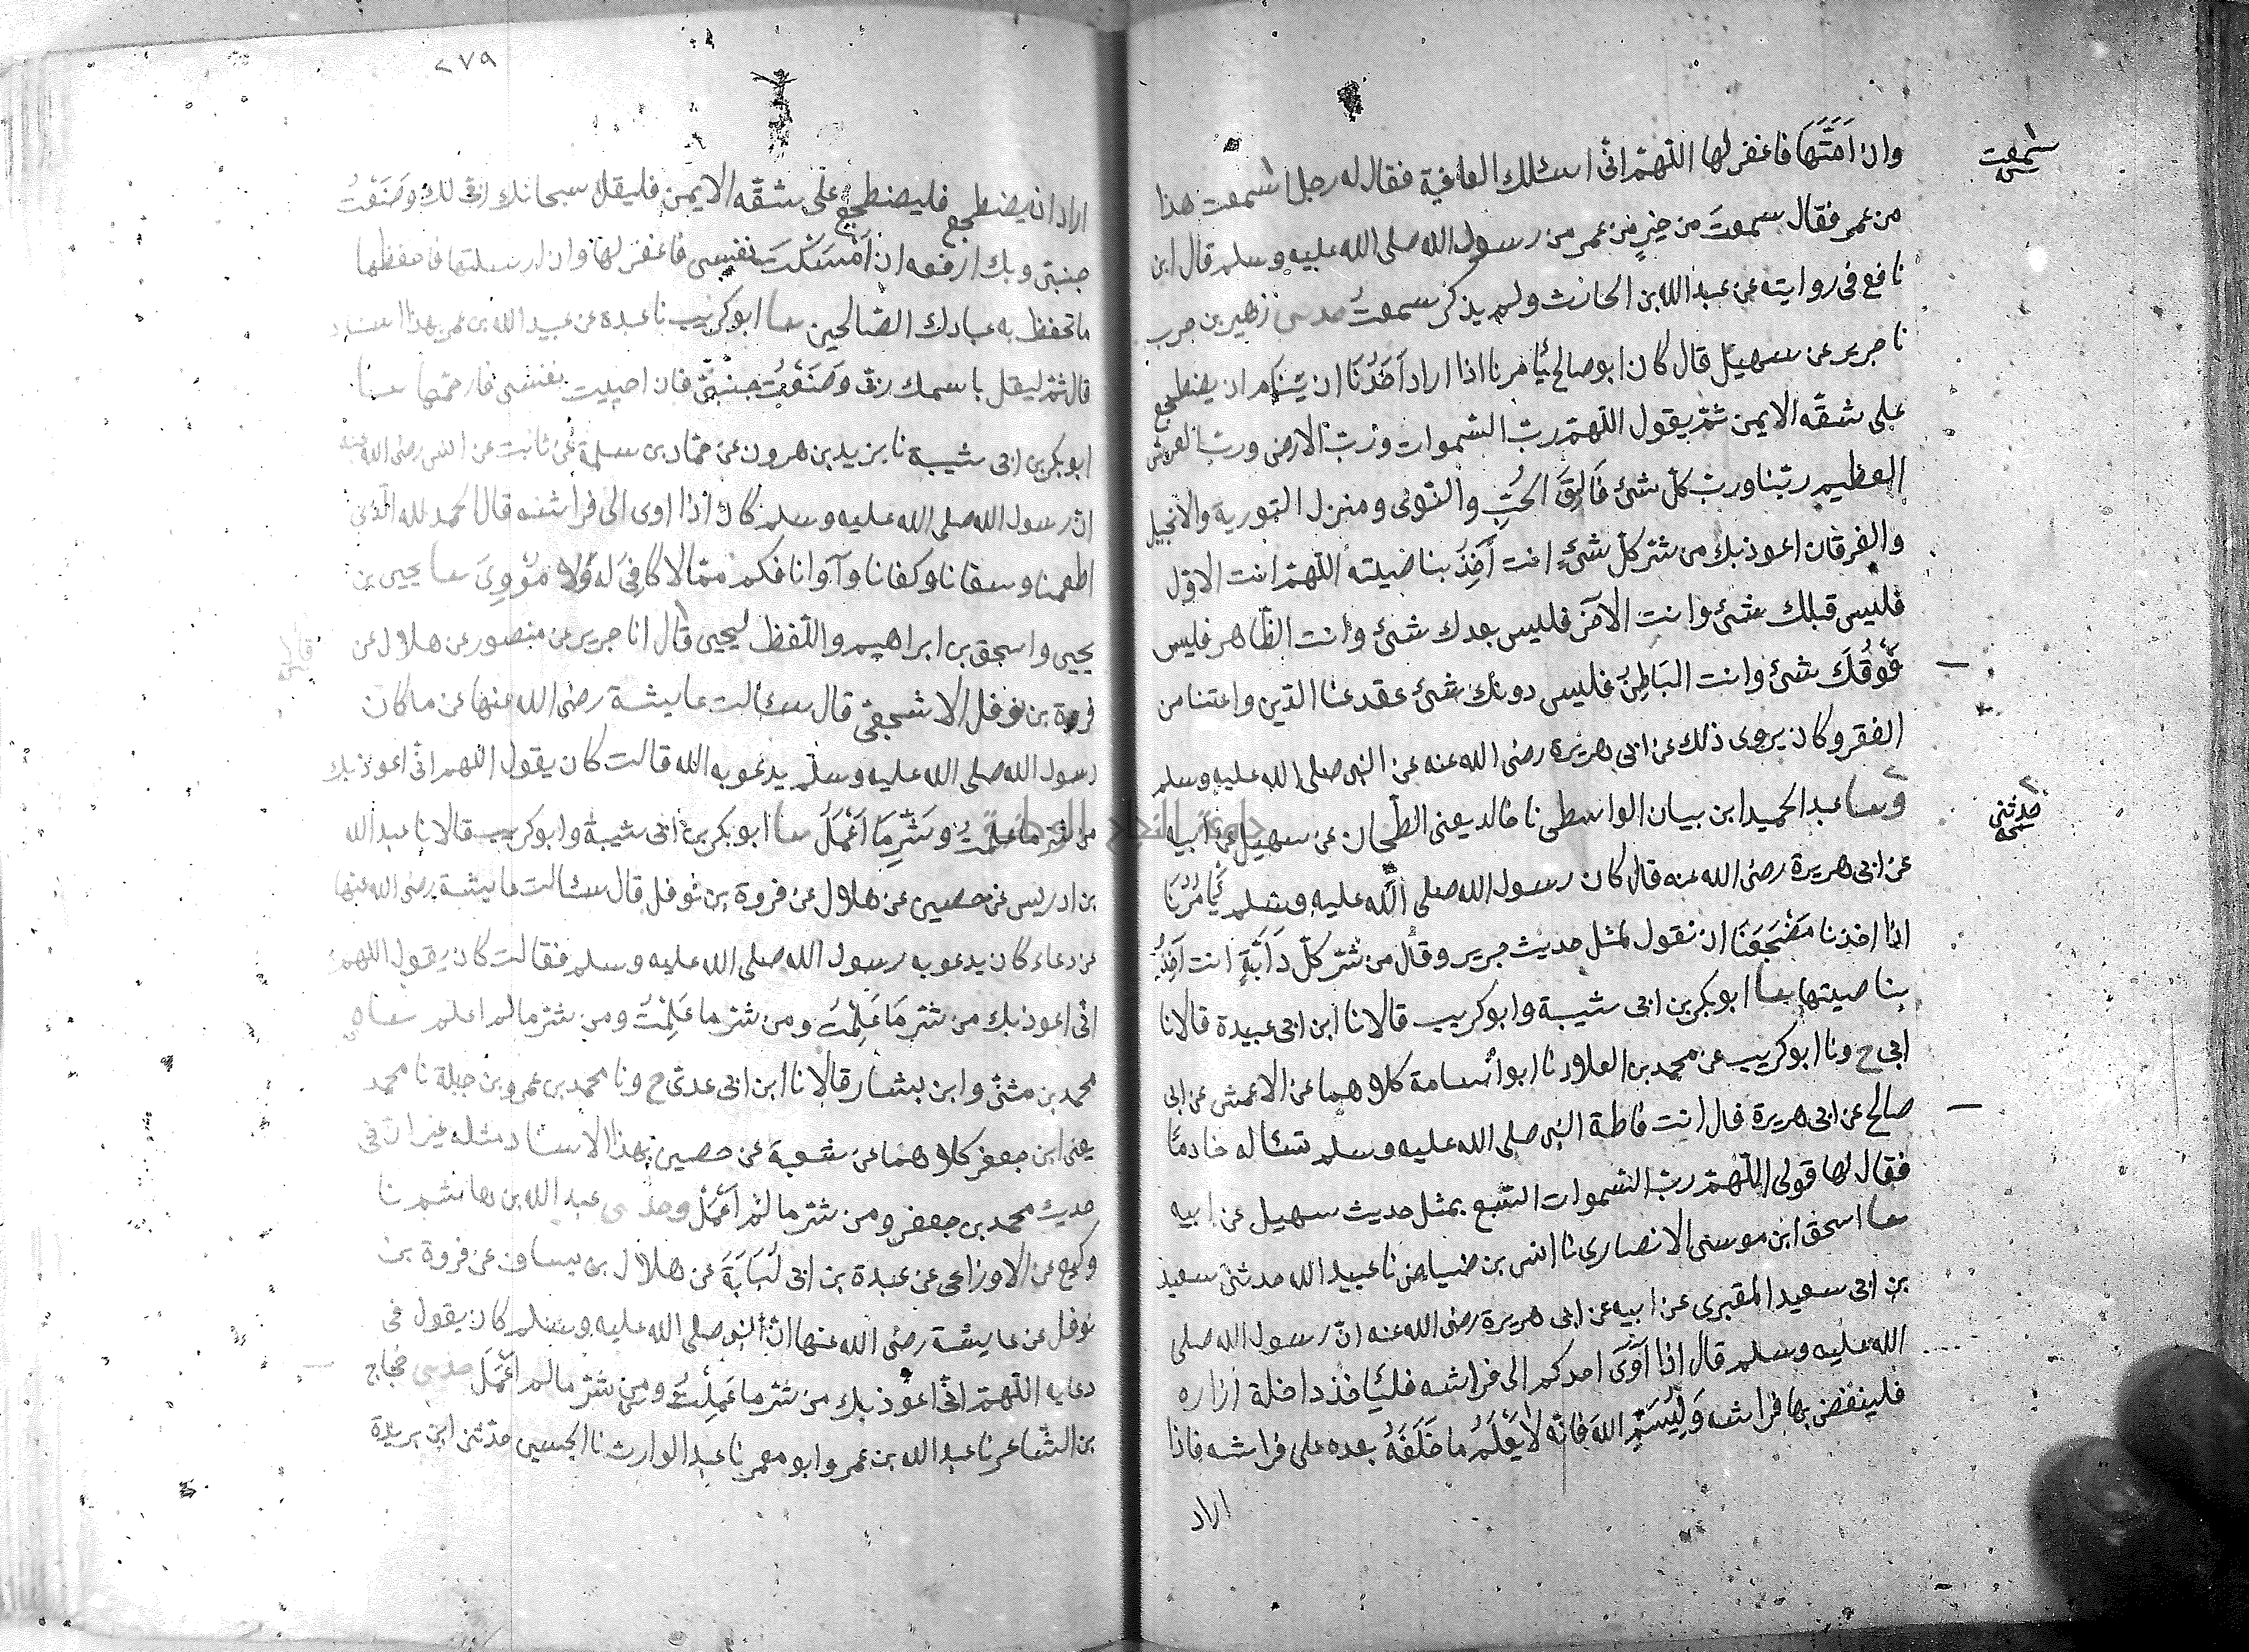 وان اَمَتَّهَا فاغفر لها اللّهمّ انّى اسئلك العافية فقال له رجل اسمعت هذا
من عمر فقال سمعتَ من خيرٍ من عمر من رسول الله صلى الله عليه وسلم قال ابن
نافع فى روايته عن عبد الله بن الحارث ولم يذكر سمعتُ حدسى زهير بن حرب
نا جرير عن سهيل قال كان ابو صالح يأمرنا اذا اراد اَحَدُنَا ان ينام ان يضطجع
على شقّه الايمن ثمّ يقول اللّهمّ ربّ السّموات وربّ الارض وربّ العرش
العظيم ربّنا وربّ كلّ شئ فَالِقَ الحُبِّ والنّوى ومنزل التورية والانجيل
والفرقان اعوذ بك من شرّ كلّ شئٍ انت آخِذٌ بناصيته اللّهمّ انت الاوّل
فليس قبلك شئ وانت الآخر فلليس بعدك شئ وانت الظّاهر فليس
فَوْقَكَ شئ وانت البَاطِنُ فليس دونك شئ عقد عنا الدّين واعتنا من
الفقر وكان يروى ذلك عن ابى هريرة رضى الله عنه عن النبى صلى الله عليه وسلم
وسا عبد الحميد ابن بيان الواسطى نا خالد يعنى الطّحان عن سهيل عن ابيه
عن ابى هريرة رضى الله عنه قال كان رسول الله صلى الله عليه وسلم يَأمُرُنَا
اذا اخذنا مَضْجَعَنَا ان نقول بمثل حديث جرير وقال من شرّ كلّ دَابَّةٍ انت آخِذٌ
بناصيتها سا ابو بكر بن ابى شيبة وابو كريب قالا نا ابن ابى عبيدة قالا نا
ابى ح ونا ابو كريب عن محمد بن العلاء نا ابو أسامة كلاهما عن الاعمش عن ابى
صالح عن ابى هريرة قال اتيت فاطمة النبى صلى الله عليه وسلم تسئاله خادمًا
فقال لها قولى اللّهمّ ربّ السّموات السّبع بمثل حديث سهيل عن ابيه
سا اسحق ابن موسى الانصارى نا انس بن ضياض نا عبيد الله حدثنى سعيد
بن ابى سعيد المقبرى عن ابيه عن ابى هريرة رضى الله عنه انّ رسول الله صلى
الله عليه وسلم قال اذا آوَى احدكم الى فراشه فليأخذ داخلة ازاره
فلينفض بها فراشه وَلْيُسَمِّ اللهَ فانّه لا يَعْلَمُ ما خَلَفَهُ بعده على فراشه فاذا
اراد
سمعت
حدثنى
٢٧٩
اراد ان يضطجع فليضطجع على شقّه الايمن فليقل سبحانك انّى لك وَضَعْتُ
جنبتى وبك ارفعه ان اَمْسَكْتَ نفسى فاغفر لها وان ارسلتها فاحفظها
ما تحفظ به عبادك الصّالحين سا ابو كريب نا عبدة عن عبيد الله بن عمر بهذا
قال ثمّ ليقل باسمك ربّى وَضَعْتُ جنبتى فان احييت نفسى فارحمها سا
ابو بكر بن ابى شيبة نا يزيد بن هرون عن حمّاد بن سلمة عن ثابت عن انس رضى الله عنه
انّ رسول الله صلى الله عليه وسلم كان اذا اوى الى فراشه قال الحمد لله الّذى
اطعمنا وسقانا وكفانا وآوانا فكم ممّا لا كافِىَ له وَلا مُؤْوِىَ سا يحيى بن
يحيى واسحق بن ابراهيم واللّفظ ليحيى قال انا جرير عن منصور عن هلال عن
فروة بن نوفل الاشجعىّ قال سئالت عايشة رضى الله عنها عن ما كان
رسول الله صلى الله عليه وسلم يدعو به الله قالت كان يقول اللّهم انّى اعوذ بك
من شرّ ما عملتُ وشَرِّ مَا اَعْمَلُ سا ابو بكر بن ابى شيبة وابو كريب قالا نا عبد الله
بن ادريس عن حصين عن هلال عن فروة بن نوفل قال سئالت عايشة رضى الله عنها
عن دعاء كان يدعو به رسول الله صلى الله عليه وسلم فقالت كان يقول اللهمّ
انّى اعوذ بك من شرّ مَا عَلِمْتُ ومن شرّ ما عَلِمْتَ ومن شرّ ما لم اعلم سا
محمد بن مثنّى وابن بشّار قالا نا ابن ابى عدىّ ح ونا محمد بن عمرو بن جبلة نا محمد
يعنى ابن جعفر كلاهما عن شعبة عن حصين بهذا الاسناد مثله غير انّ فى
حديث محمد بن جعفر ومن شرّ ما لَمْ اَعْمَلْ وحدسى عبد الله بن هاشم نا
وكيع عن الاوزاعى عن عبدة بن ابى لُبَابَةَ عن هلال بن يساف عن فروة بن
نوفل عن عايشة رضى الله عنها انّ النبى صلى الله عليه وسلم كان يقول فى
دعايه اللّهمّ انّى اعوذ بك من شرّ ما عَمِلْتُ ومن شرّ ما لم اَعْمَلْ حدسى حجاج
بن الشّاعر نا عبد الله بن عمرو ابو معمر نا عبد الوارث نا الحسين حدّثنى ابن بريدة